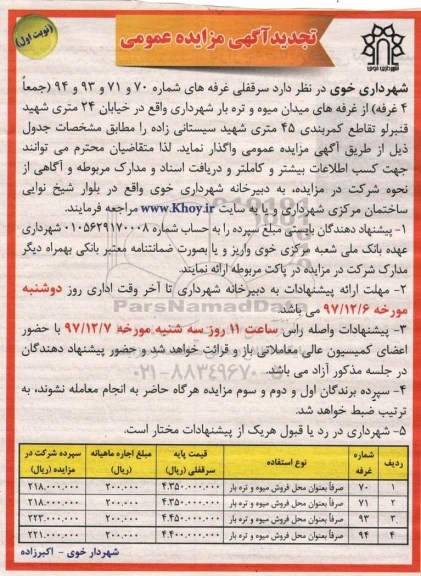 (نوبت اول)
تجدیدآگهی مزایده عمومی
شهرداری خوی
شهرداری خوی در نظر دارد سرقفلی غرفه های شماره ۷۰ و ۷۱ و ۹۳ و ۹۴ (جمعاً
۴ غرفه) از غرفه های میدان میوه و تره بار شهرداری واقع در خیابان ۲۴ متری شهید
قنبرلو تقاطع کمربندی ۴۵ متری شهید سیستانی زاده را مطابق مشخصات جدول
ذیل از طریق آگهی مزایده عمومی واگذار نماید. لذا متقاضیان محترم می توانند
جهت کسب اطلاعات بیشتر و کاملتر و دریافت اسناد و مدارک مربوطه و آگاهی از
نحوه شرکت در مزایده، به دبیرخانه شهرداری خوی واقع در بلوار شیخ نوایی
ساختمان مرکزی شهرداری و یا به سایت www.Khoy.ir مراجعه فرمایند.
۱- پیشنهاد دهندگان بایستی مبلغ سپرده را به حساب شماره ۰۱۰۵۶۲۹۱۷۰۰۰۸ شهرداری
عهده بانک ملی شعبه مرکزی خوی واریز و یا بصورت ضمانتنامه معتبر بانکی بهمراه دیگر
مدارک شرکت در مزایده در پاکت مربوطه ارائه نمایند.
۲- مهلت ارائه پیشنهادات به دبیرخانه شهرداری تا آخر وقت اداری روز دوشنبه
مورخه ۹۷/۱۲/۶ می باشد.
ParsNamadData
۳- پیشنهادات واصله راس ساعت ۱۱ روز سه شنبه مورخه ۹۷/۱۲/۷ با حضور
اعضای کمیسیون عالی معاملاتی باز و قرائت خواهد شد و حضور پیشنهاد دهندگان
در جلسه مذکور آزاد می باشد.
۰۲۱-۸۸۳۴۹۶۷۰
۴- سپرده برندگان اول و دوم و سوم مزایده هرگاه حاضر به انجام معامله نشوند، به
ترتیب ضبط خواهد شد.
۵- شهرداری در رد یا قبول هریک از پیشنهادات مختار است.
ردیف شماره غرفه نوع استفاده قیمت پایه سرقفلی (ریال) مبلغ اجاره ماهیانه (ریال) سپرده شرکت در مزایده (ریال)
۱ ۷۰ صرفاً بعنوان محل فروش میوه و تره بار ۴.۳۵۰.۰۰۰.۰۰۰ ۲۰۰.۰۰۰ ۲۱۸.۰۰۰.۰۰۰
۲ ۷۱ صرفاً بعنوان محل فروش میوه و تره بار ۴.۳۵۰.۰۰۰.۰۰۰ ۲۰۰.۰۰۰ ۲۱۸.۰۰۰.۰۰۰
۳ ۹۳ صرفاً بعنوان محل فروش میوه و تره بار ۴.۴۵۰.۰۰۰.۰۰۰ ۲۰۰.۰۰۰ ۲۲۳.۰۰۰.۰۰۰
۴ ۹۴ صرفاً بعنوان محل فروش میوه و تره بار ۴.۴۰۰.۰۰۰.۰۰۰ ۲۰۰.۰۰۰ ۲۲۱.۰۰۰.۰۰۰
شهردار خوی - اکبرزاده